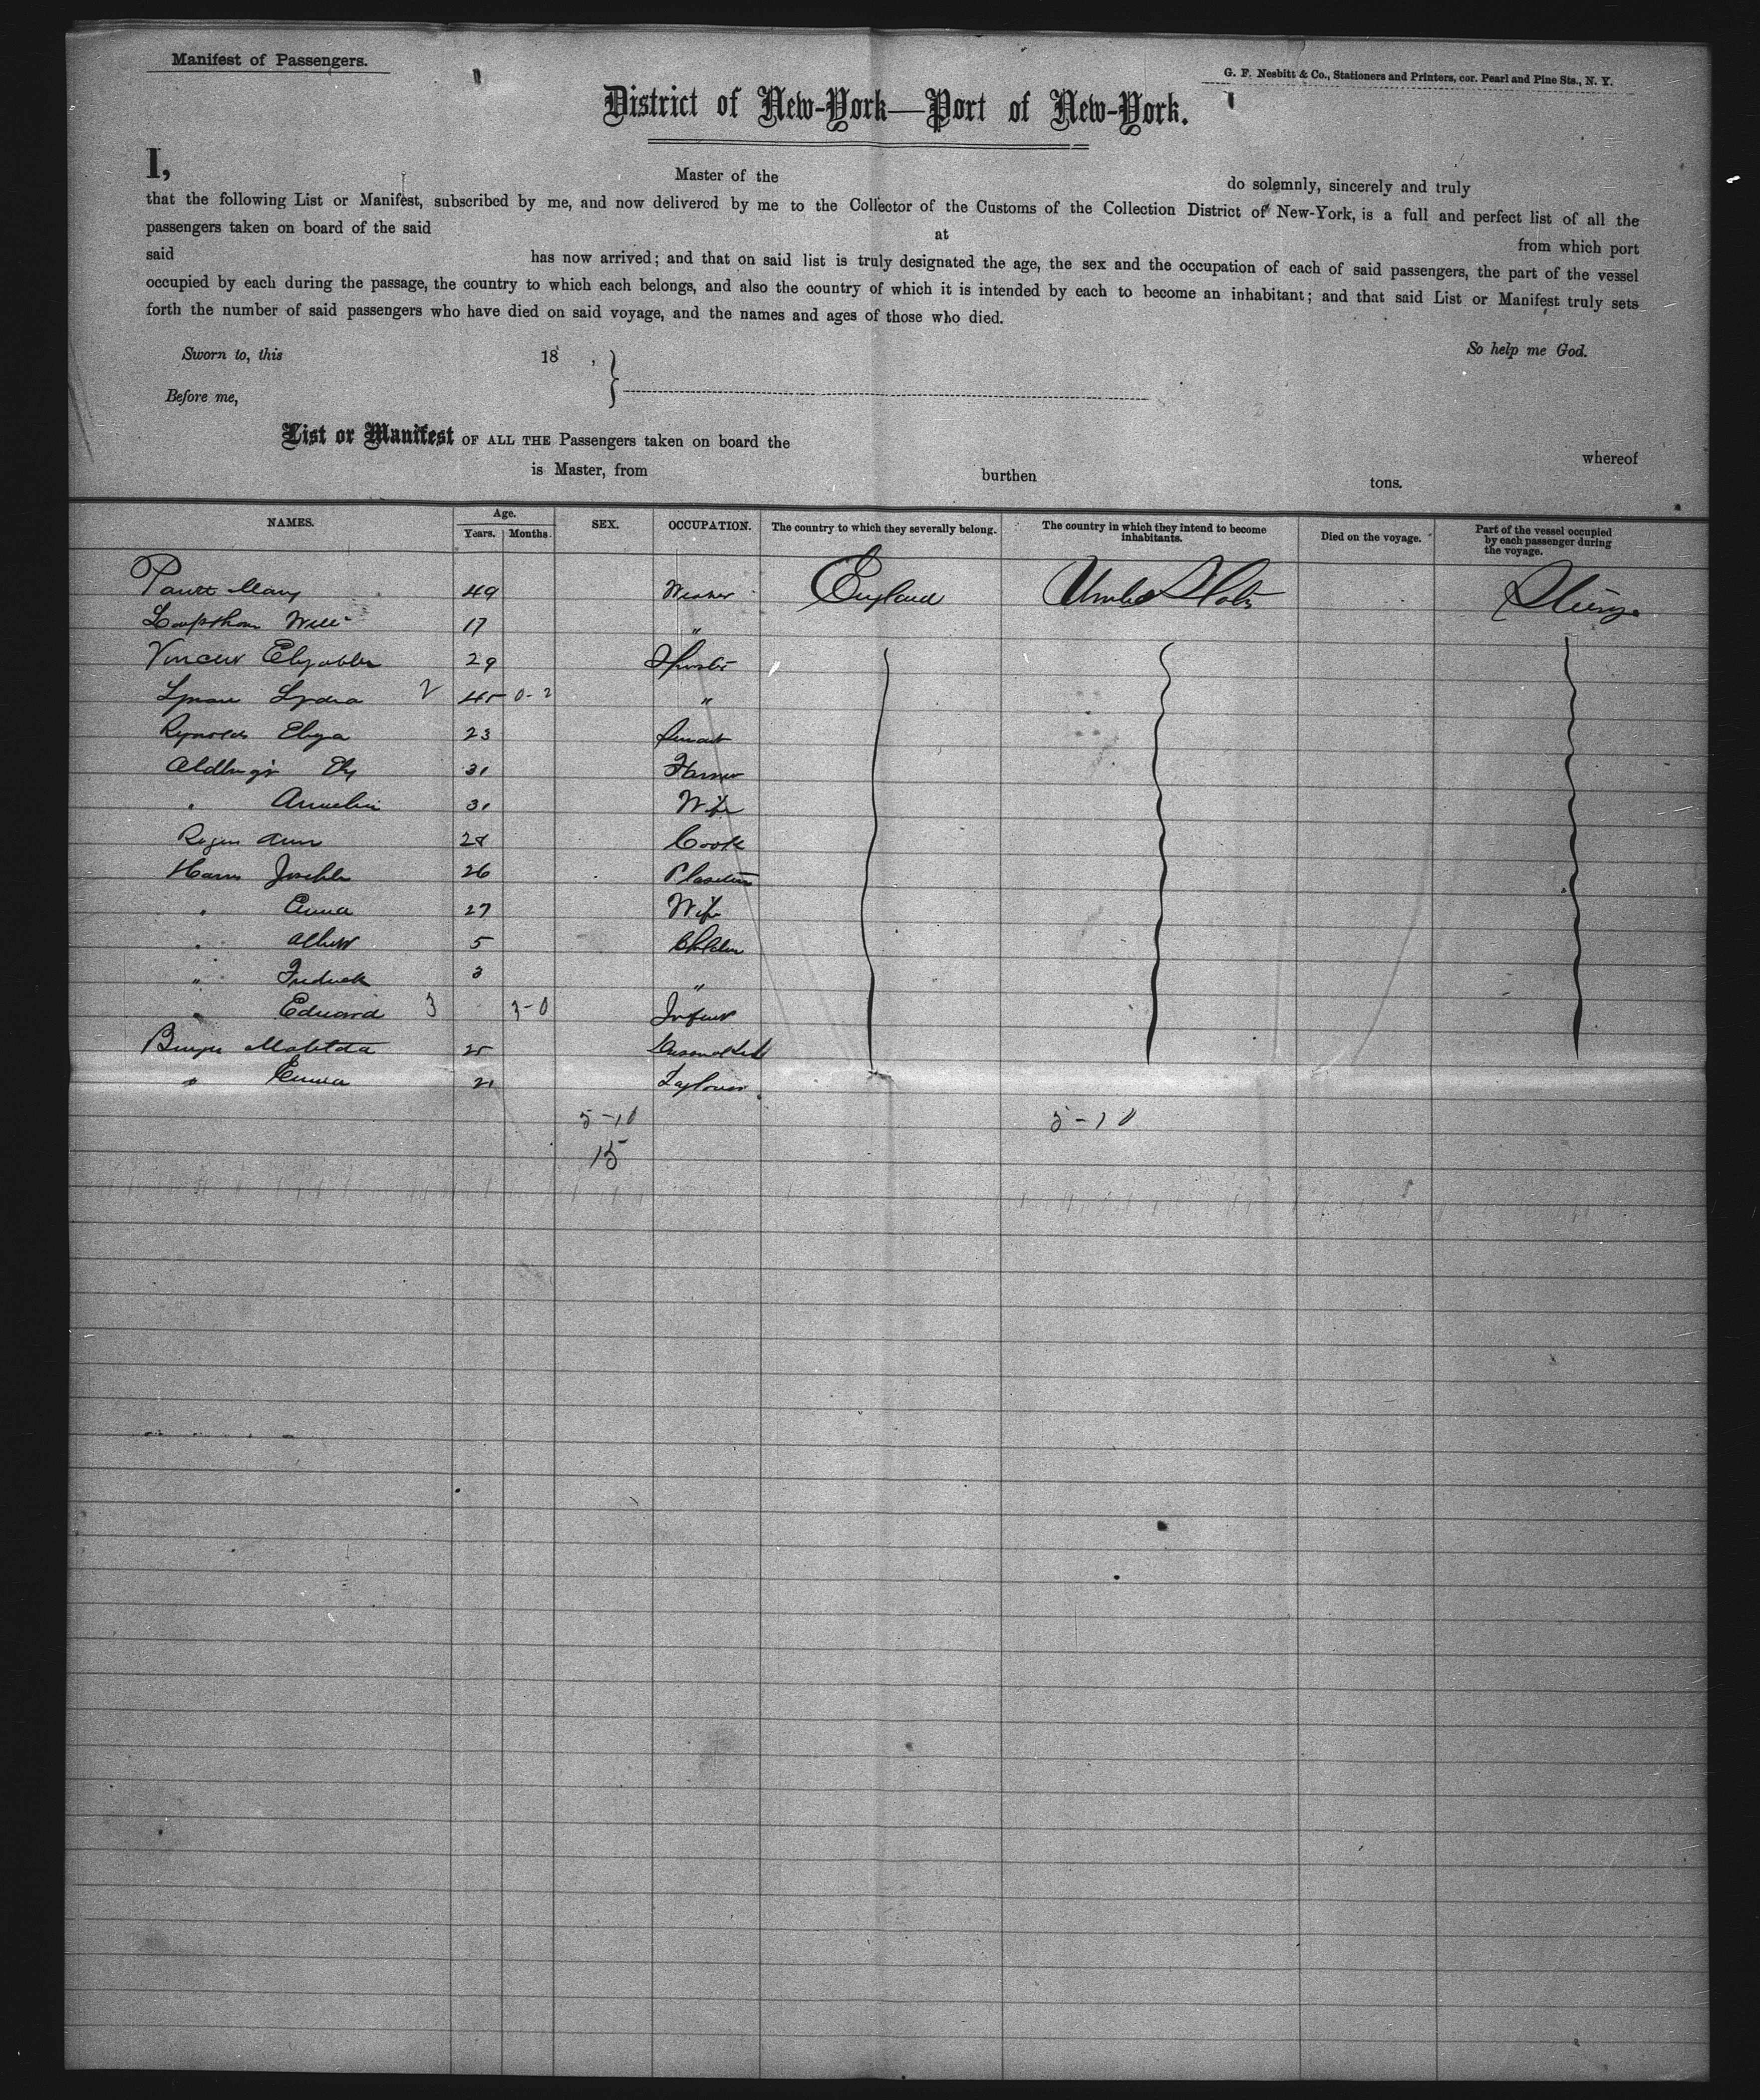 Manifest of Passengers.
G. F. Nesbitt & Co., Stationers and Printers, cor. Pearl and Pine Sts., N. Y.
District of New-York—Port of New-York.
I, Master of the do solemnly, sincerely and truly
that the following List or Manifest, subscribed by me, and now delivered by me to the Collector of the Customs of the Collection District of New-York, is a full and perfect list of all the
passengers taken on board of the said at from which port
said has now arrived; and that on said list is truly designated the age, the sex and the occupation of each of said passengers, the part of the vessel
occupied by each during the passage, the country to which each belongs, and also the country of which it is intended by each to become an inhabitant; and that said List or Manifest truly sets
forth the number of said passengers who have died on said voyage, and the names and ages of those who died.
Sworn to, this 18 , So help me God.
Before me,
List or Manifest OF ALL THE Passengers taken on board the whereof
is Master, from burthen tons.
NAMES. Age. Years. Months. SEX. OCCUPATION. The country to which they severally belong. The country in which they intend to become inhabitants. Died on the voyage. Part of the vessel occupied by each passenger during the voyage.
Mary 49 Weaver England United States Steerage
Will 17 "
Vincent 29
Lydia 2 45 0-2 "
Reynolds Eliza 23 Servant
31 Farmer
" 31 Wife
Ann 28 Cook
Harris 26
" Emma 27 Wife
" Albert 5 Children
" Fredrick 3 "
" Edward 3 3-0 Infant
Matilda 25
" Emma 21
5-10 5-10
15